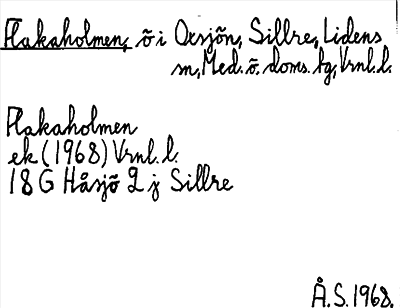 Flakaholmen, ö i Oxsjön, Sillre, Lidens
sn, Med. ö. doms. bg, Vrnl. l.
Flakaholmen
ek (1968) Vrnl. l.
18 G Håsjö 2 j Sillre
Å. S. 1968.